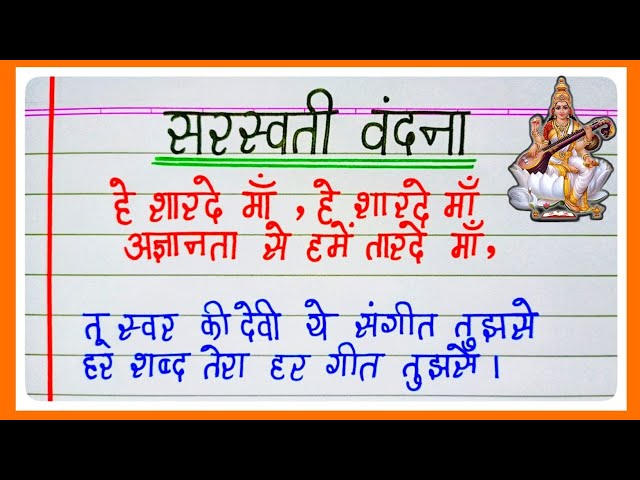 सरस्वती वंदना
हे शारदे माँ , हे शारदे माँ
अज्ञानता से हमें तारदे माँ,
तू स्वर की देवी ये संगीत तुझसे
हर शब्द तेरा हर गीत तुझसे ।